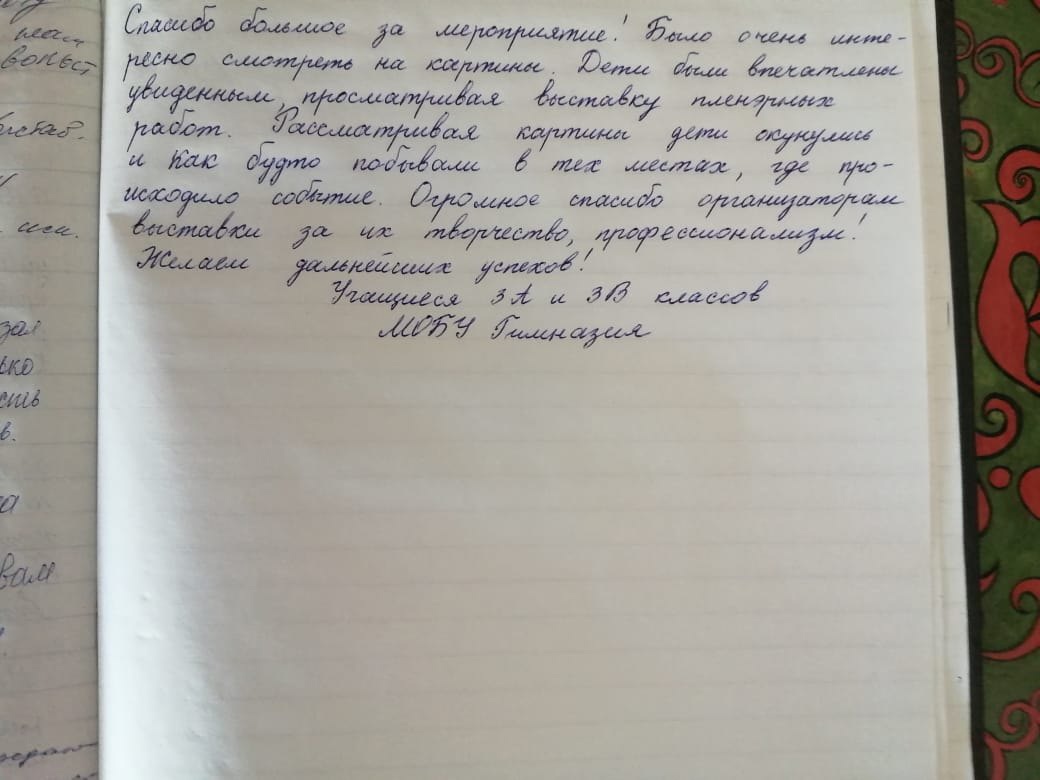 Спасибо большое за мероприятие! Было очень инте-
ресно смотреть на картины. Дети были впечатлены
увиденным, просматривая выставку пленэрных
работ. Рассматривая картины дети окунулись
и как будто побывали в тех местах, где про-
исходило событие. Огромное спасибо организаторам
выставки за их творчество, профессионализм!
Желаем дальнейших успехов!
Учащиеся 3А и 3В классов
МОБУ Гимназия